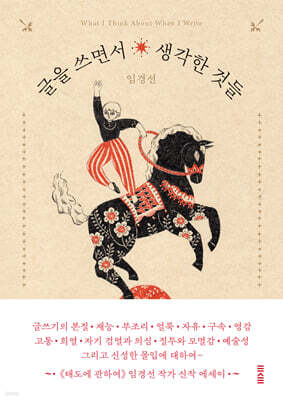 What I Think About When I Write
글을 쓰면서 생각한 것들
임경선
글쓰기의 본질 • 재능 • 부조리 • 얼룩 • 자유 • 구속 • 영감
고통 • 희열 • 자기 검열과 의심 • 질투와 모멸감 • 예술성
그리고 신성한 몰입에 대하여-
《태도에 관하여》 임경선 작가 신작 에세이